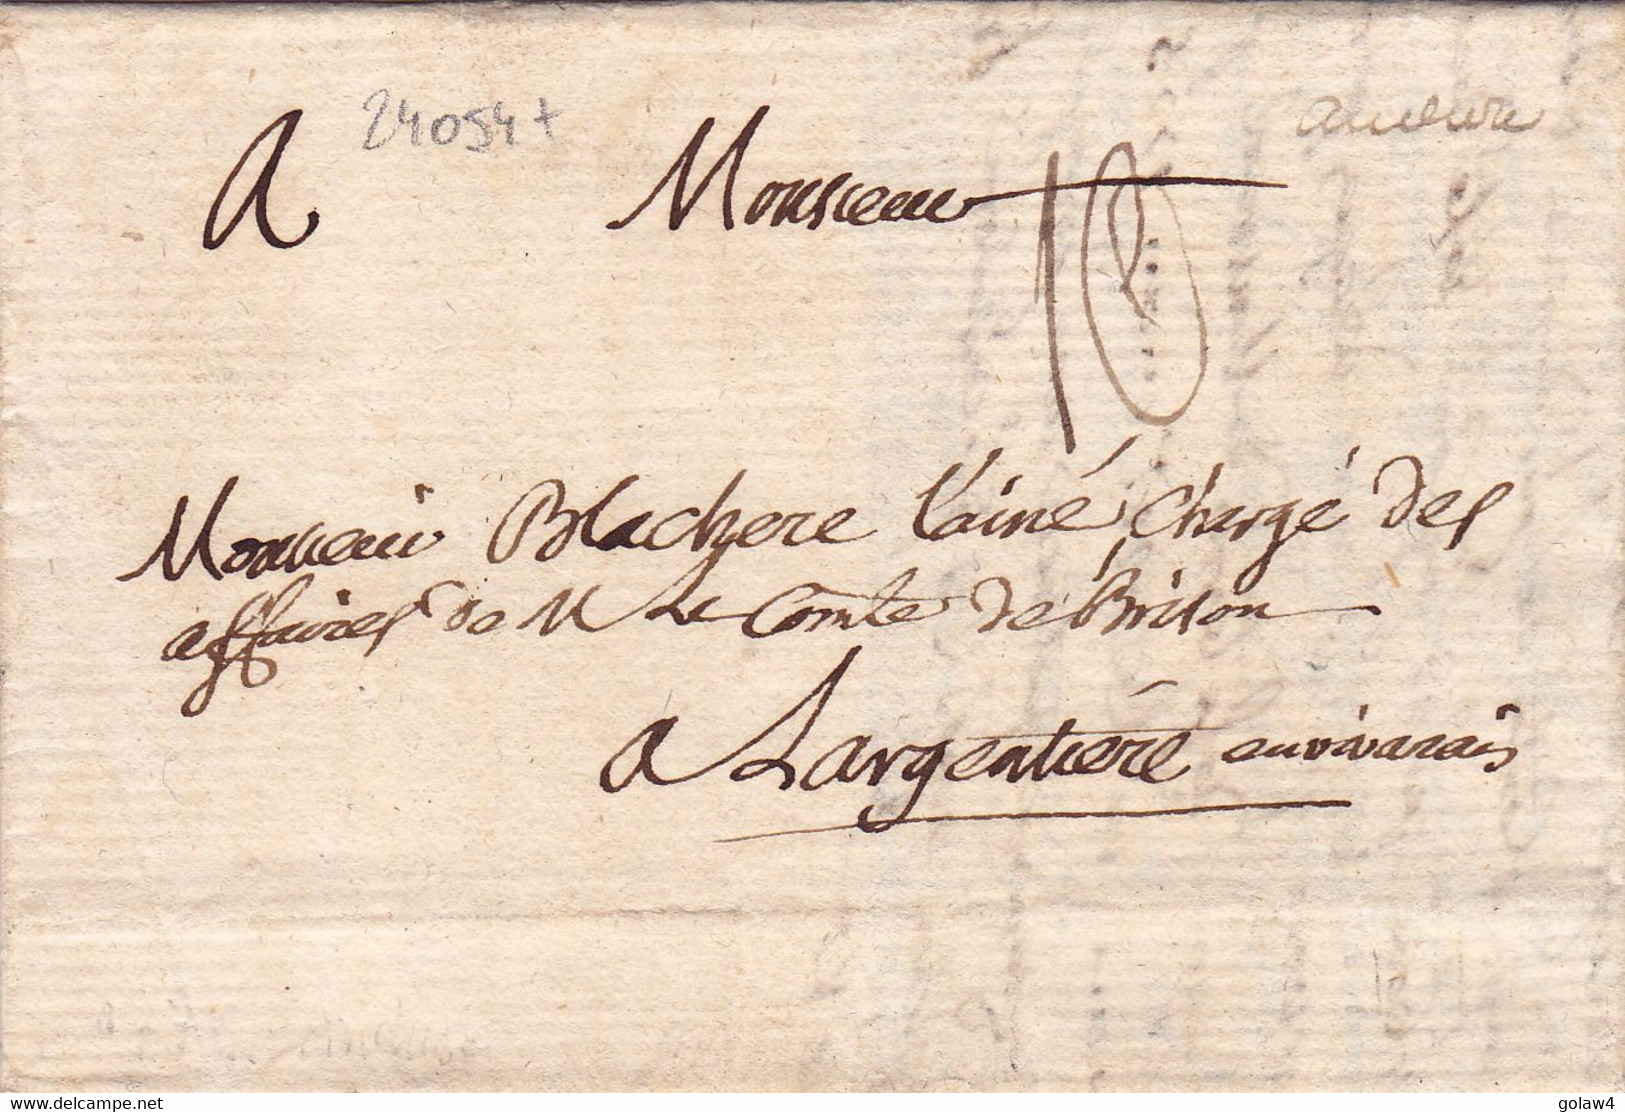 24054+
A Monsieur
10
Monsieur Blachere L'ainé, Chargé des
affaires de M Le Comte de Brison
a Largentiére en vivarais
www.delcampe.net
golaw4